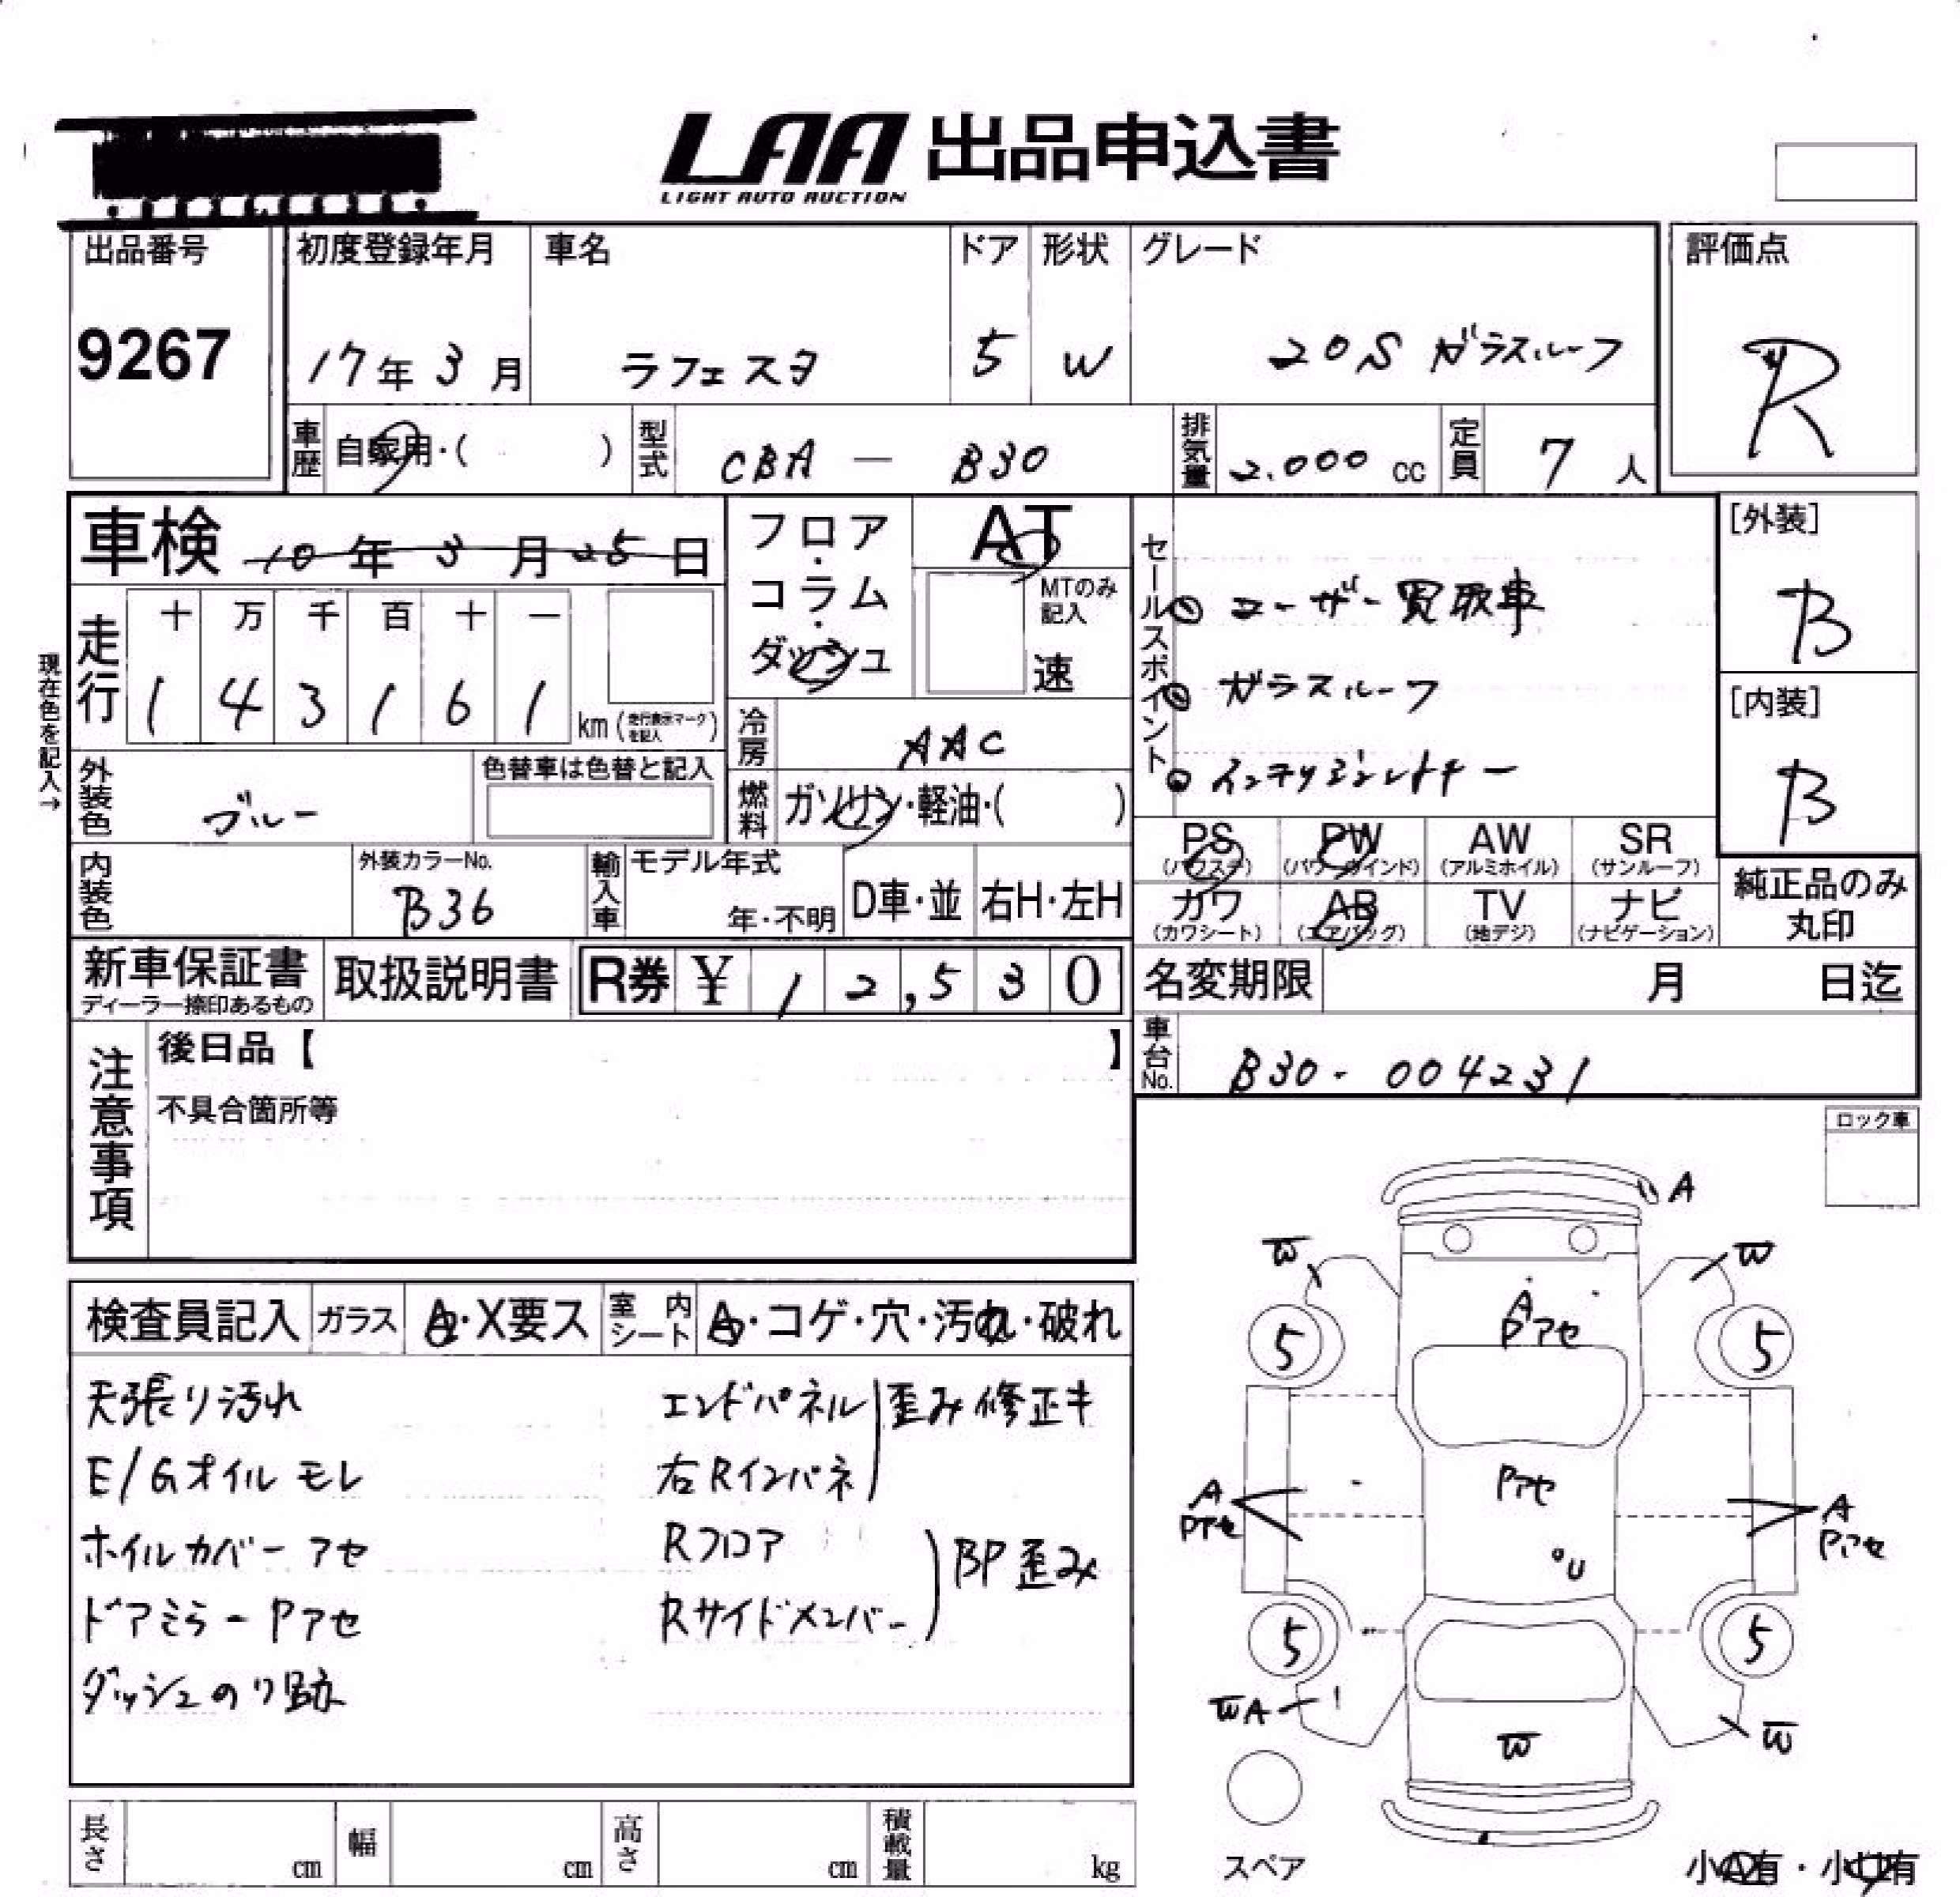 LAA 出品申込書
LIGHT AUTO AUCTION
出品番号 初度登録年月 車名 ドア 形状 グレード 評価点
9267 17年 3月 ラフェスタ 5 W 20S ガラスルーフ R
車歴 自家用・( ) 型式 CBA — B30 排気量 2.000 cc 定員 7 人
車検 10年 3月 25日
フロア・コラム・ダッシュ
AT
MTのみ記入
速
セールスポイント
ユーザー買取車
ガラスルーフ
インテリジェントキー
[外装]
B
[内装]
B
現在色を記入→
走行 十 万 千 百 十 一
1 4 3 1 6 1 km (走行表示マークを記入)
冷房 AAC
外装色 ブルー 色替車は色替と記入
燃料 ガソリン・軽油・( )
PS PW AW SR
(パワステ) (パワーウインド) (アルミホイル) (サンルーフ)
カワ AB TV ナビ
(カワシート) (エアバッグ) (地デジ) (ナビゲーション)
純正品のみ丸印
内装色 外装カラーNo. B36 輸入車 モデル年式 年・不明 D車・並 右H・左H
新車保証書 取扱説明書 R券 ¥ 12,530 名変期限 月 日迄
ディーラー捺印あるもの
注意事項
後日品【 】
不具合箇所等
車台No. B30- 004231
ロック車
検査員記入 ガラス A・X要ス 室内シート A・コゲ・穴・汚れ・破れ
天張り汚れ エンドパネル 歪み修正キ
E/Gオイルモレ 右Rインパネ
ホイルカバーアセ Rフロア BP歪み
ドアミラーPアセ Rサイドメンバー
ダッシュのり跡
A
W W
A
Pアセ
5 5
Pアセ
A A
Pアセ Pアセ
U
5 5
WA W
W
スペア
小A有・小U有
長さ cm 幅 cm 高さ cm 積載量 kg